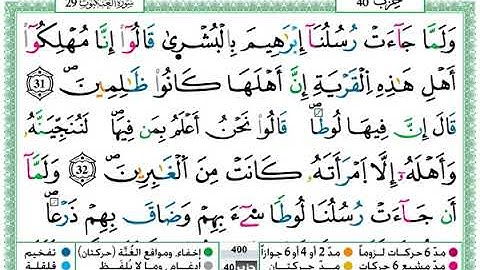 سورة العنكبوت 29 حزب 40
وَلَمَّا جَآءَتْ رُسُلُنَآ إِبْرَٰهِيمَ بِالْبُشْرَىٰ قَالُوٓا۟ إِنَّا مُهْلِكُوٓا۟
أَهْلِ هَٰذِهِ الْقَرْيَةِ إِنَّ أَهْلَهَا كَانُوا۟ ظَٰلِمِينَ ۝ 31
قَالَ إِنَّ فِيهَا لُوطًا قَالُوا۟ نَحْنُ أَعْلَمُ بِمَن فِيهَا لَنُنَجِّيَنَّهُۥ
وَأَهْلَهُۥٓ إِلَّا امْرَأَتَهُۥ كَانَتْ مِنَ الْغَٰبِرِينَ ۝ 32 وَلَمَّآ
أَن جَآءَتْ رُسُلُنَا لُوطًا سِىٓءَ بِهِمْ وَضَاقَ بِهِمْ ذَرْعًا
مدّ 6 حركات لزوماً مدّ 2 أو 4 أو 6 جوازاً 400 إخفاء، ومواقع الغُنَّة (حركتان) تفخيم
مدّ مشبع 6 حركات مدّ حركتان 40 إدغام، وما لا يُلفظ قلقلة